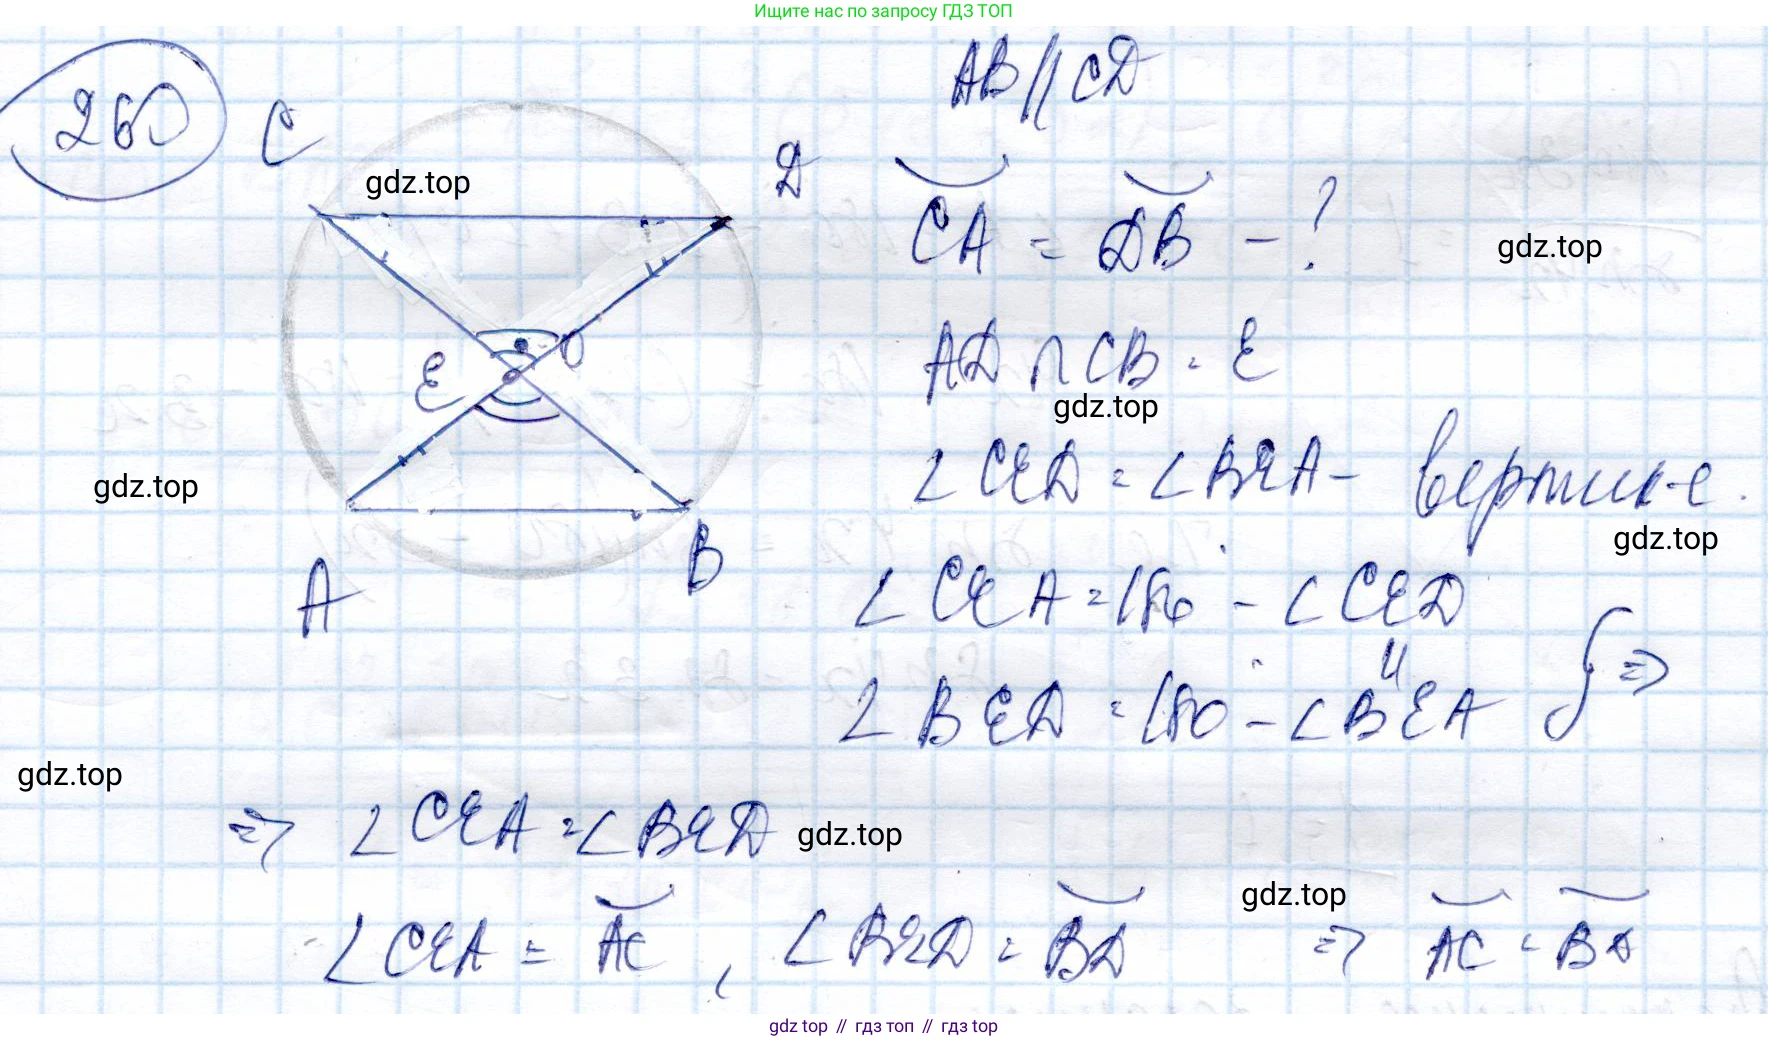 Ищите нас по запросу ГДЗ ТОП
260
AB || CD
C
D
gdz.top
CA = DB - ?
gdz.top
AD ∩ CB = E
E
O
gdz.top
∠CED = ∠BEA - вертик-е.
gdz.top
gdz.top
A
B
∠CEA = 180° - ∠CED
∠BED = 180° - ∠BEA } =>
gdz.top
=> ∠CEA = ∠BED
gdz.top
gdz.top
∠CEA = AC, ∠BED = BD => AC = BD
gdz top // гдз топ // gdz top